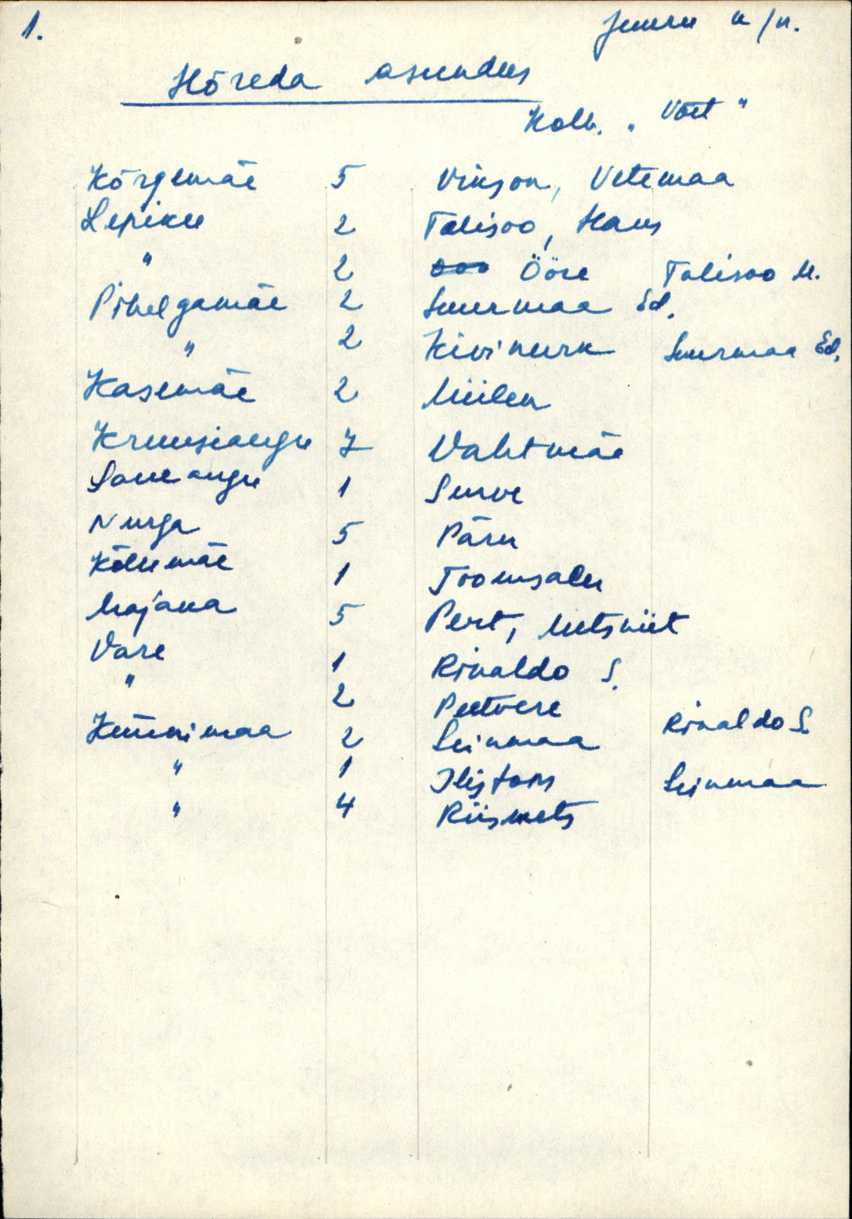 1.
Juuru k/n.
Hõreda asundus
Kolh. "Võit"
Kõrgemäe 5 Vinson, Vetemaa
Lepiku 2 Talisoo, Hans
" 2 Ööre Talisoo M.
Pihelgamäe 2 Suurmaa Ed.
" 2 Kivinurk Suurmaa Ed.
Kasemäe 2 Miilen
Kruusiaugu 7 Vahtmäe
Saueaugu 1 Surve
Nurga 5 Pärn
Kõllemäe 1 Toomsalu
Majaka 5 Pert, Metsniit
Vare 1 Rinaldo S.
" 2 Peetvere Rinaldo S.
Künnimaa 2 Leinmaa
" 1 Ilistom Leinmaa
" 4 Riismets